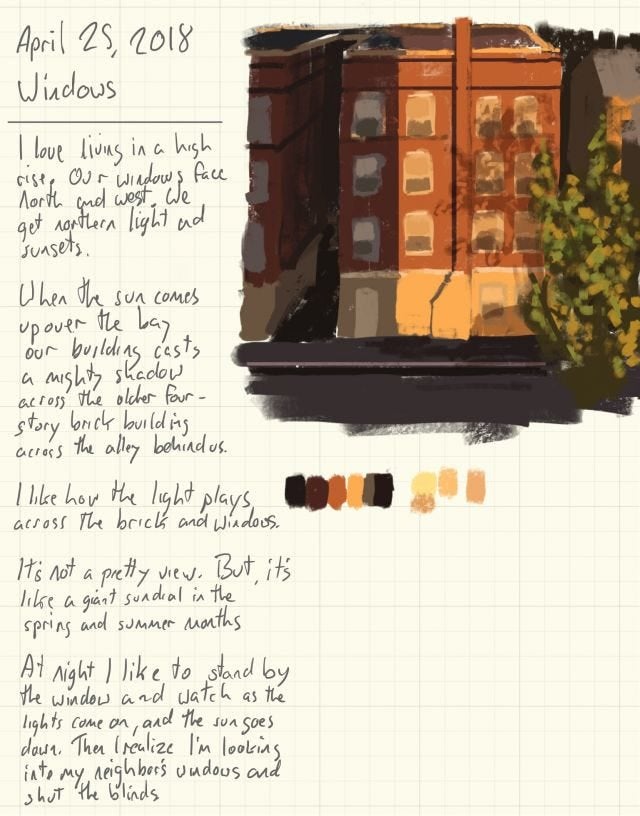 April 25, 2018
Windows
I love living in a high
rise. Our windows face
north and west. We
get northern light and
sunsets.
When the sun comes
up over the bay
our building casts
a mighty shadow
across the older four-
story brick building
across the alley behind us.
I like how the light plays
across the bricks and windows.
It's not a pretty view. But, it's
like a giant sundial in the
spring and summer months
At night I like to stand by
the window and watch as the
lights come on, and the sun goes
down. Then I realize I'm looking
into my neighbor's windows and
shut the blinds